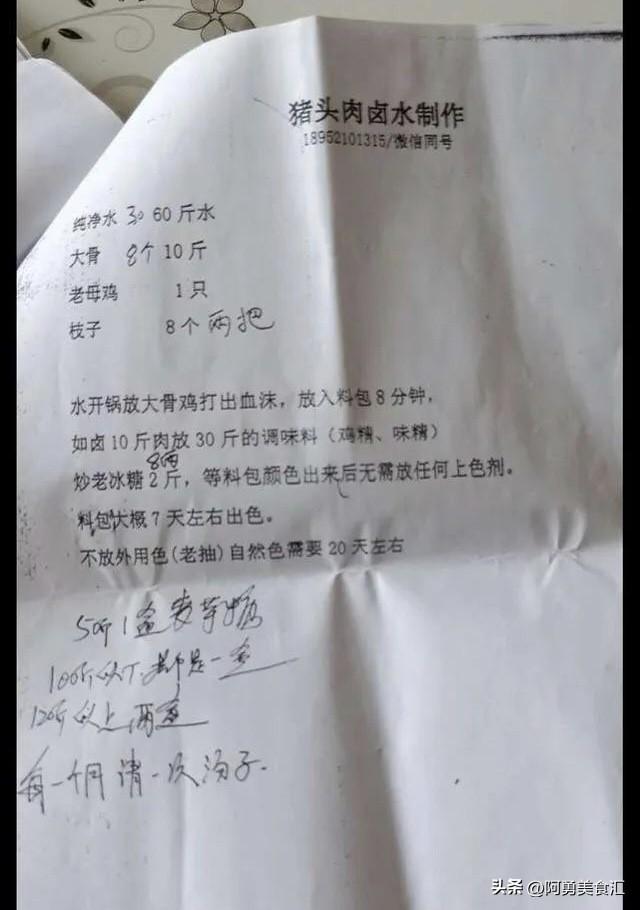 猪头肉卤水制作
18952101315/微信同号
纯净水 30 60斤水
大骨 8个 10斤
老母鸡 1只
枝子 8个 两把
水开锅放大骨鸡打出血沫，放入料包8分钟，
如卤10斤肉放30斤的调味料（鸡精、味精）
8两
炒老冰糖2斤，等料包颜色出来后无需放任何上色剂。
料包大概7天左右出色。
不放外用色(老抽)自然色需要20天左右
50斤1壶麦芽糖
100斤以下都是一壶
120斤以上两壶
每一个月清一次汤子.
头条 @阿勇美食汇